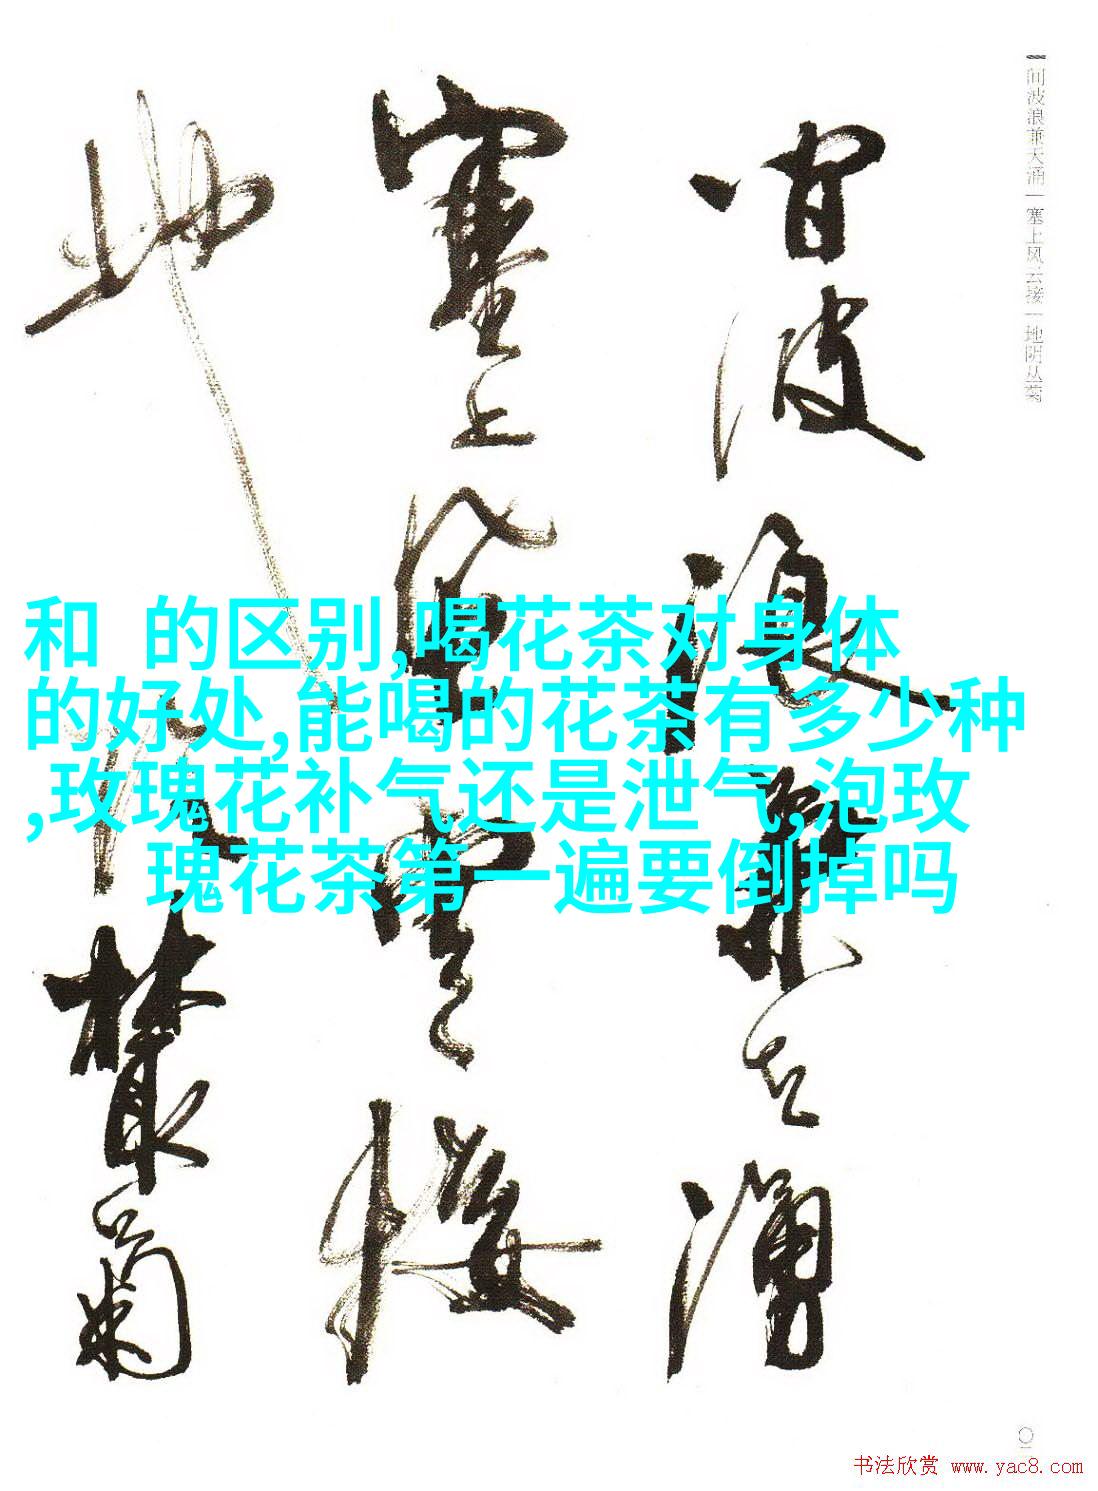 间波浪兼天涌｜塞上风云接｜地阴丛菊
间波浪兼天涌
塞上风云接
地阴丛菊
和 的区别,喝花茶对身体
的好处,能喝的花茶有多少种
,玫瑰花补气还是泄气,泡玫
瑰花茶第一遍要倒掉吗
书法欣赏 www.yac8.com